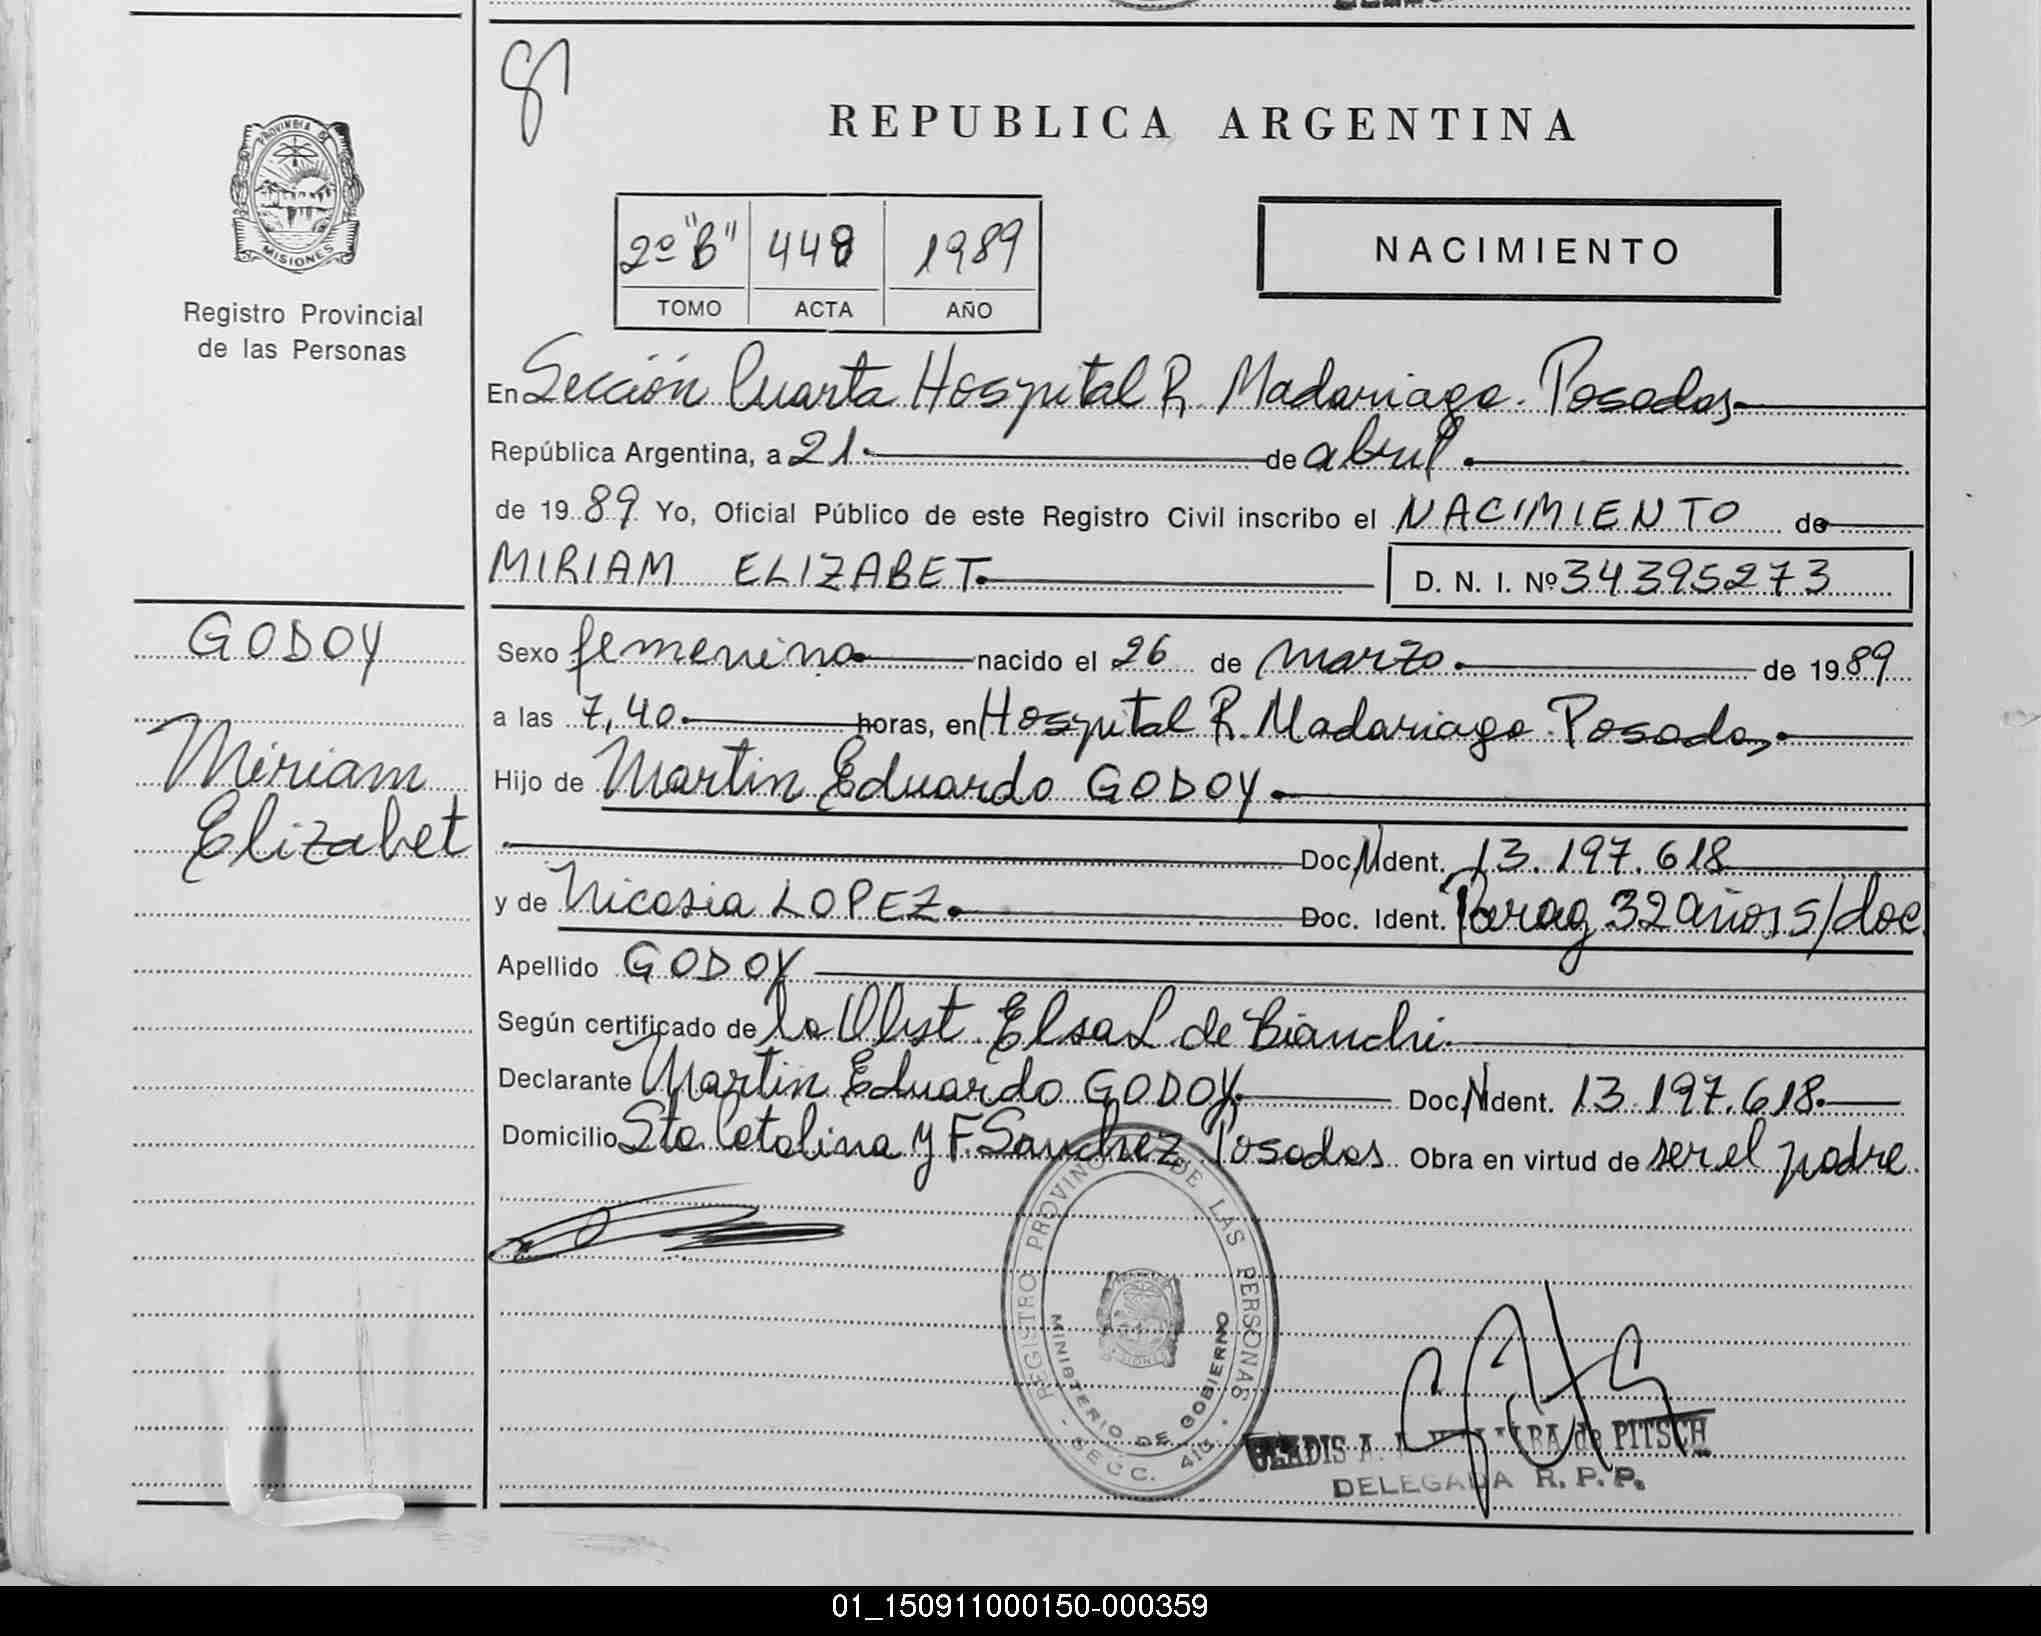 REPUBLICA ARGENTINA
PROVINCIA DE
MISIONES
Registro Provincial
de las Personas
2º "B" 448 1989
TOMO ACTA AÑO
NACIMIENTO
En Sección Cuarta Hospital R. Madariaga. Posadas
República Argentina, a 21 de abril
de 1989 Yo, Oficial Público de este Registro Civil inscribo el NACIMIENTO de
MIRIAM ELIZABET D. N. I. Nº 34395273
GODOY
Miriam
Elizabet
Sexo femenino nacido el 26 de marzo de 1989
a las 7,40 horas, en Hospital R. Madariaga. Posadas
Hijo de Martin Eduardo GODOY
Doc. N Ident. 13.197.618
y de Nicasia LOPEZ Doc. Ident. Parag 32 años s/doc
Apellido GODOY
Según certificado de la Obst. Elsa L de Bianchi
Declarante Martin Eduardo GODOY Doc. N Ident. 13.197.618
Domicilio Sta Catalina y F. Sanchez Posadas Obra en virtud de ser el padre
REGISTRO PROVINC DE LAS PERSONAS
MINISTERIO DE GOBIERNO
SECC. 4ta.
GLADIS A. de PITSCH
DELEGADA R. P. P.
01_150911000150-000359